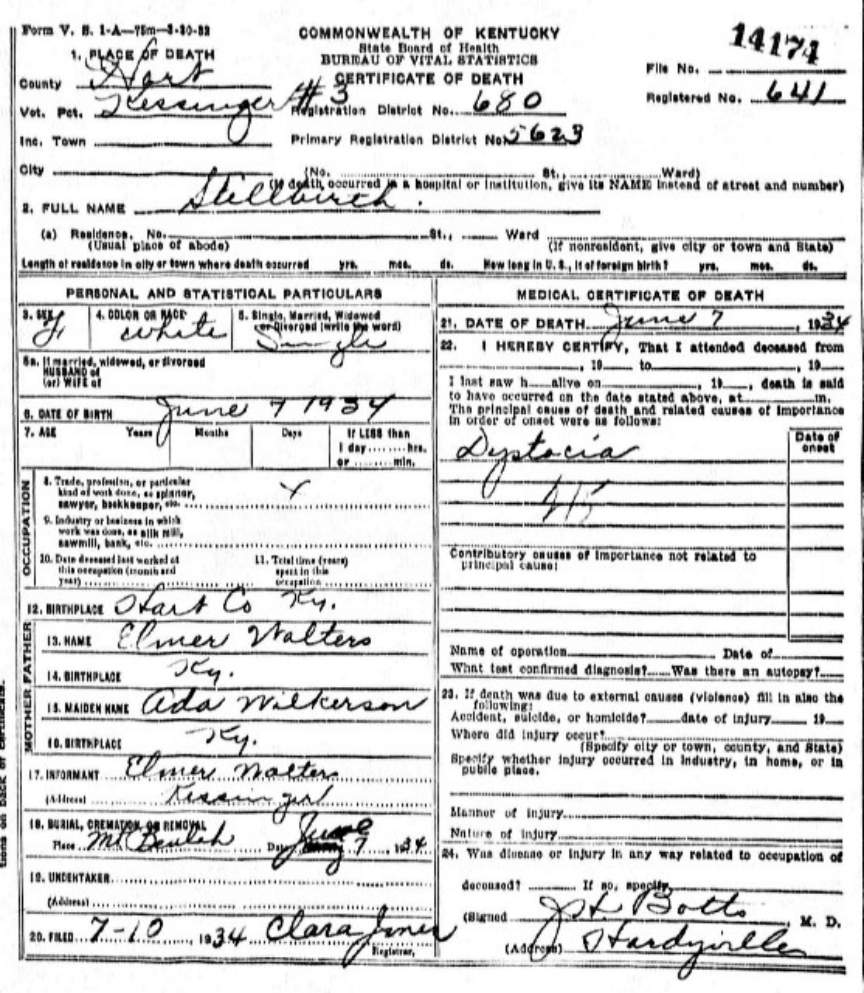 Form V. S. 1-A—75m—3-30-32
COMMONWEALTH OF KENTUCKY
State Board of Health
BUREAU OF VITAL STATISTICS
CERTIFICATE OF DEATH
14174
File No.
Registered No. 641
1. PLACE OF DEATH
County Hart
Vot. Pct. Kessinger #3
Registration District No. 680
Inc. Town
Primary Registration District No. 5623
City (No. St., Ward)
(If death occurred in a hospital or institution, give its NAME instead of street and number)
2. FULL NAME Stillbirth.
(a) Residence, No. St., Ward
(Usual place of abode) (If nonresident, give city or town and State)
Length of residence in city or town where death occurred yrs. mos. ds. How long in U. S., if of foreign birth? yrs. mos. ds.
PERSONAL AND STATISTICAL PARTICULARS
3. SEX F
4. COLOR OR RACE white
5. Single, Married, Widowed
or Divorced (write the word)
Single
5a. If married, widowed, or divorced
HUSBAND of
(or) WIFE of
6. DATE OF BIRTH June 7 1934
7. AGE Years Months Days If LESS than
1 day ........ hrs.
or ........ min.
OCCUPATION
8. Trade, profession, or particular
kind of work done, as spinner,
sawyer, bookkeeper, etc.
9. Industry or business in which
work was done, as silk mill,
sawmill, bank, etc.
10. Date deceased last worked at
this occupation (month and
year)
11. Total time (years)
spent in this
occupation
12. BIRTHPLACE Hart Co Ky.
FATHER
13. NAME Elmer Walters
14. BIRTHPLACE Ky.
MOTHER
15. MAIDEN NAME Ada Wilkerson
16. BIRTHPLACE Ky.
17. INFORMANT Elmer Walters
(Address)
18. BURIAL, CREMATION, OR REMOVAL
Place Mt Beulah Date June 7 1934
19. UNDERTAKER
(Address)
20. FILED 7-10, 1934 Clara Jones
Registrar.
MEDICAL CERTIFICATE OF DEATH
21. DATE OF DEATH June 7, 1934
22. I HEREBY CERTIFY, That I attended deceased from
, 19 to , 19
I last saw h alive on , 19 , death is said
to have occurred on the date stated above, at m.
The principal cause of death and related causes of importance
in order of onset were as follows:
Date of
onset
Dystocia
Contributory causes of importance not related to
principal cause:
Name of operation Date of
What test confirmed diagnosis? Was there an autopsy?
23. If death was due to external causes (violence) fill in also the
following:
Accident, suicide, or homicide? date of injury 19
Where did injury occur?
(Specify city or town, county, and State)
Specify whether injury occurred in industry, in home, or in
public place.
Manner of injury
Nature of injury
24. Was disease or injury in any way related to occupation of
deceased? If so, specify
(Signed Botts, M. D.
(Address) Hardyville
tions on back of certificate.